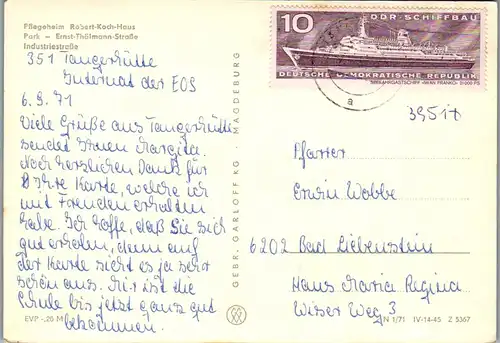 Pflegeheim Robert-Koch-Haus
Park – Ernst-Thälmann-Straße
Industriestraße
351 Tangerhütte
Internat der EOS
6.9.71
Viele Grüße aus Tangerhütte
sendet Ihnen Margita.
Noch herzlichen Dank für
Ihre Karte, welche ich
mit Freuden erhalten
habe. Ich hoffe, daß Sie sich
gut erholen, denn auf
der Karte sieht es ja sehr
schön aus. Mir ist die
Schule bis jetzt ganz gut
bekommen.
EVP -,20 M
GEBR. GARLOFF KG · MAGDEBURG
10 DDR-SCHIFFBAU
DEUTSCHE DEMOKRATISCHE REPUBLIK
SEEFAHRGASTSCHIFF »IWAN FRANKO« 21000 PS
a
Pfarrer
Erwin Wobbe
6202 Bad Liebenstein
Haus Maria Regina
Wiser Weg 3
N 1/71 IV-14-45 Z 5367